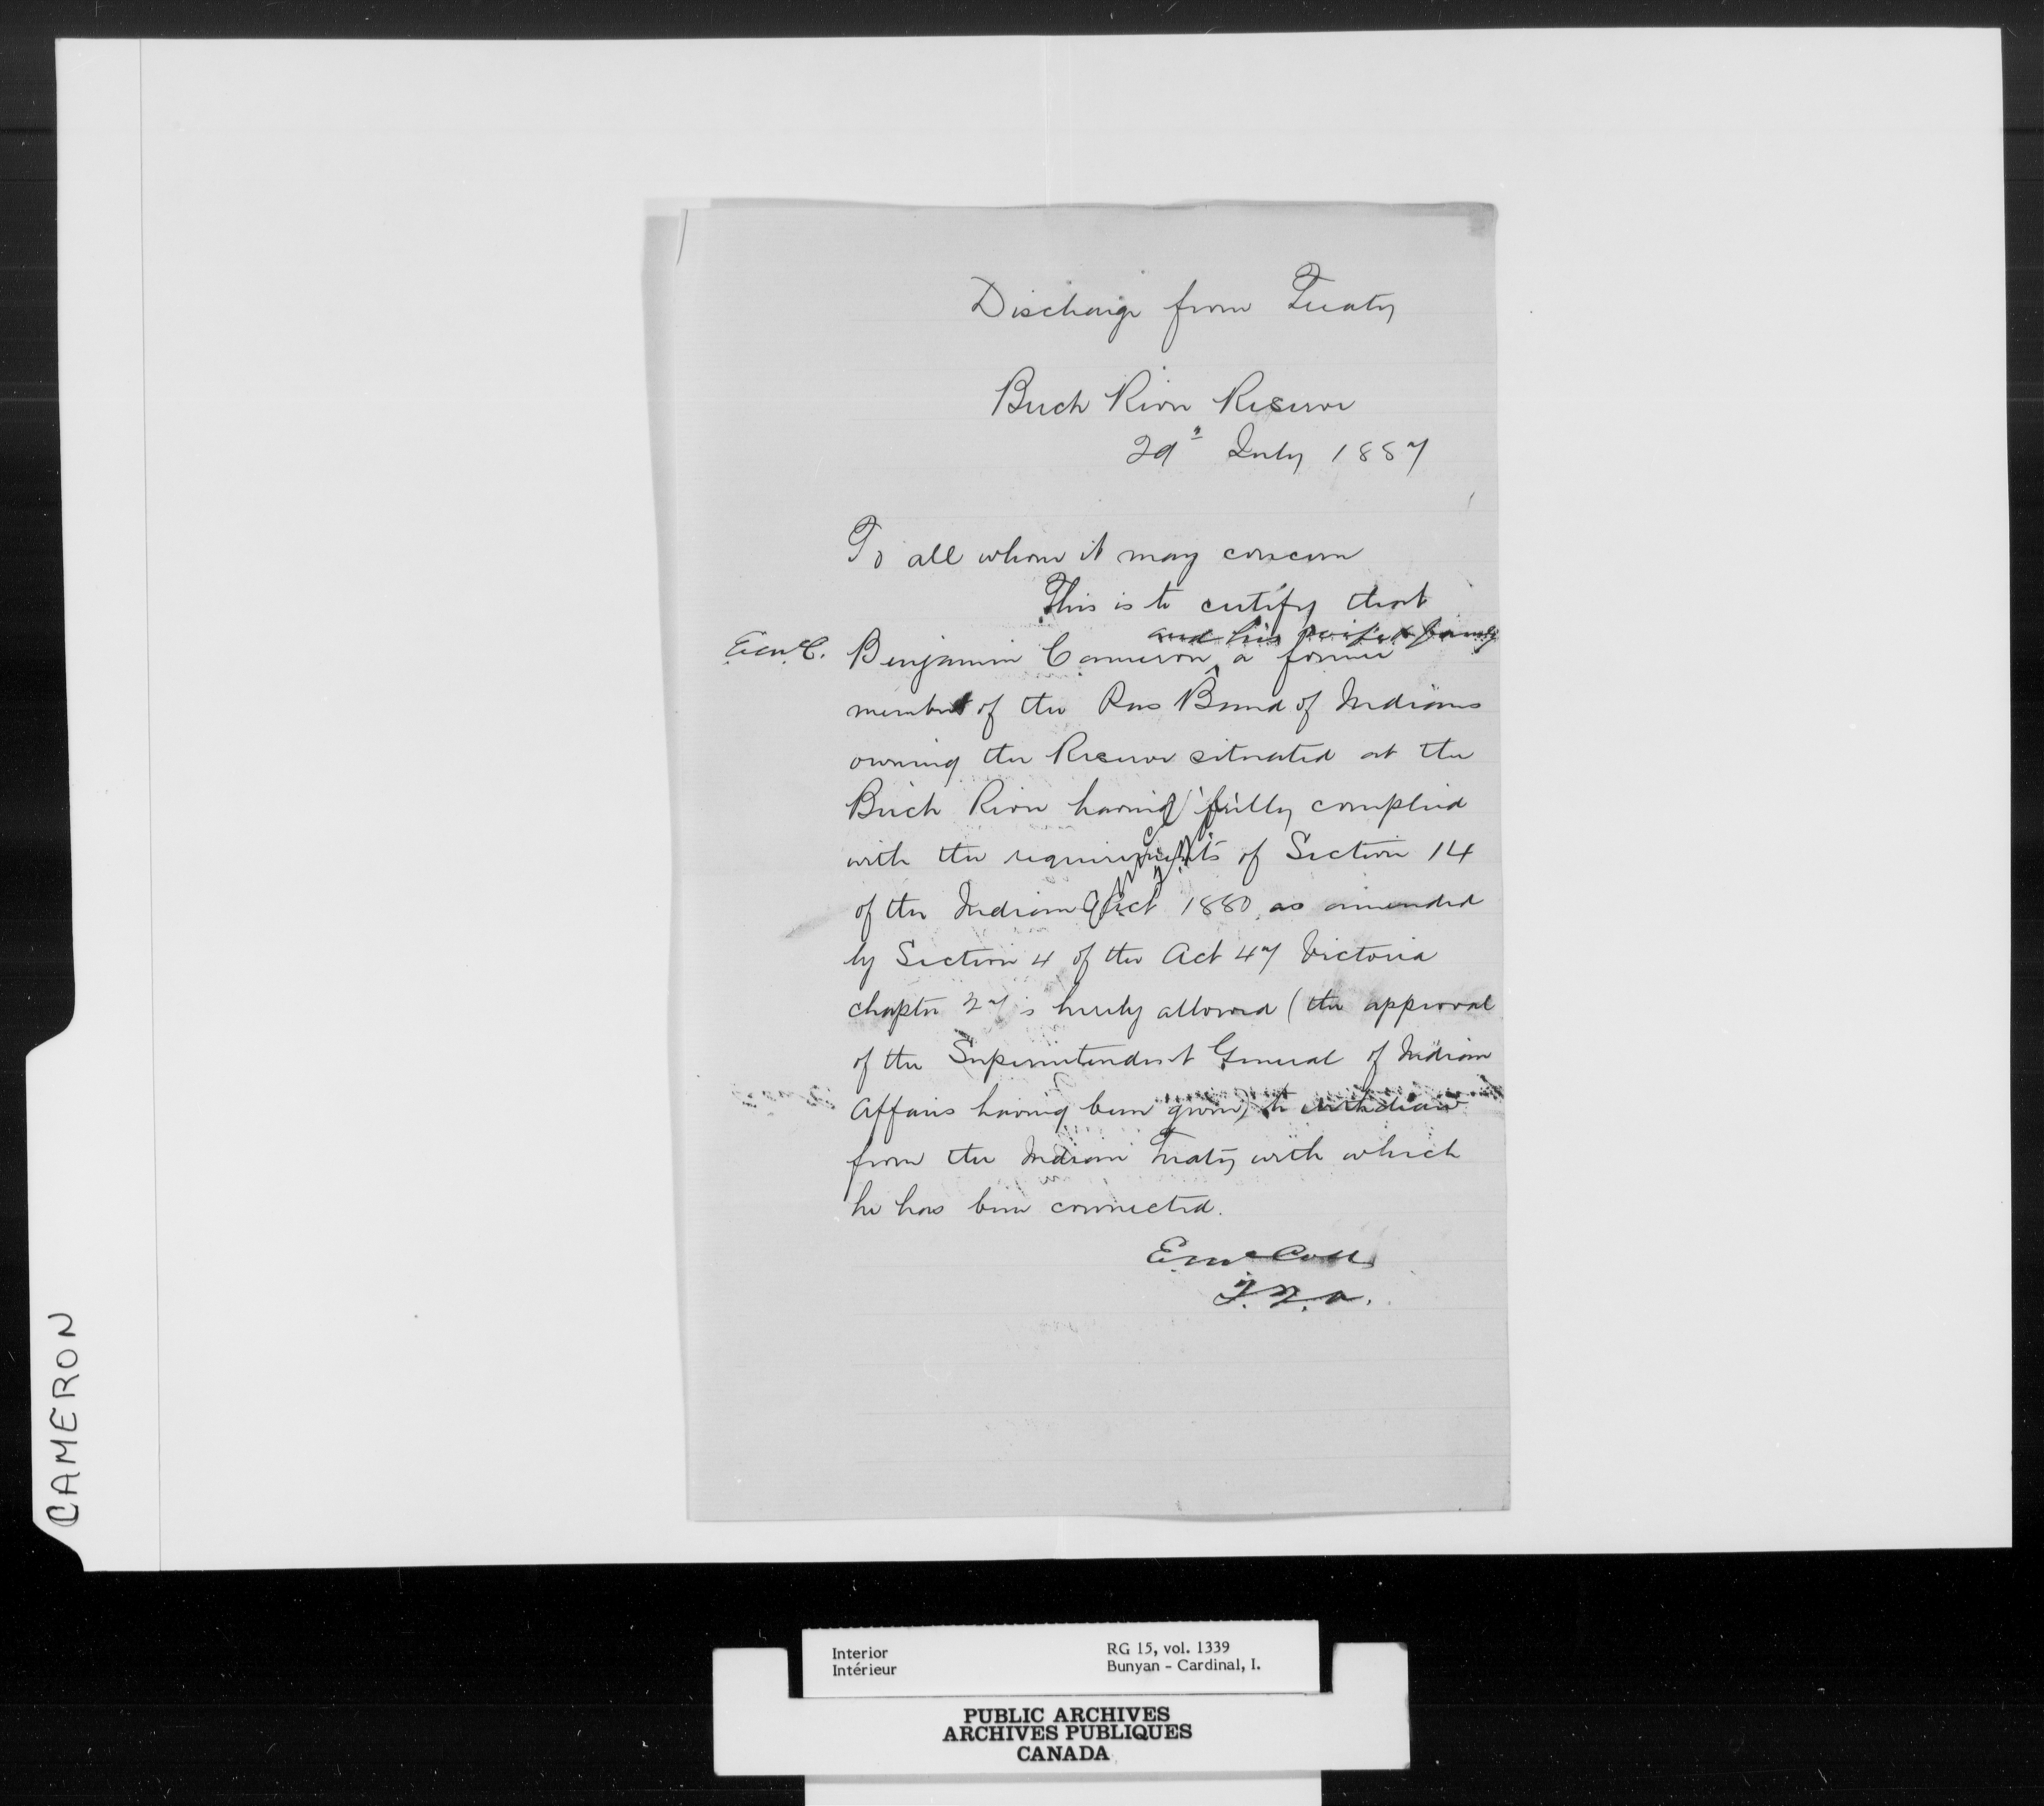 Discharge from Treaty
Birch River Reserve
29th July 1887
To all whom it may concern
This is to certify that
and his wife & family
E. McC. Benjamin Cameron ^ a former
member of the Pas Band of Indians
owning the Reserve situated at the
Birch River having fully complied
with the requirements of Section 14
of the Indian Act 1880, as amended
by Section 4 of the Act 47 Victoria
chapter 27 is hereby allowed (the approval
of the Superintendent General of Indian
Affairs having been given) to withdraw
from the Indian Treaty with which
he has been connected.
E. McColl
CAMERON
Interior
Intérieur
RG 15, vol. 1339
Bunyan - Cardinal, I.
PUBLIC ARCHIVES
ARCHIVES PUBLIQUES
CANADA